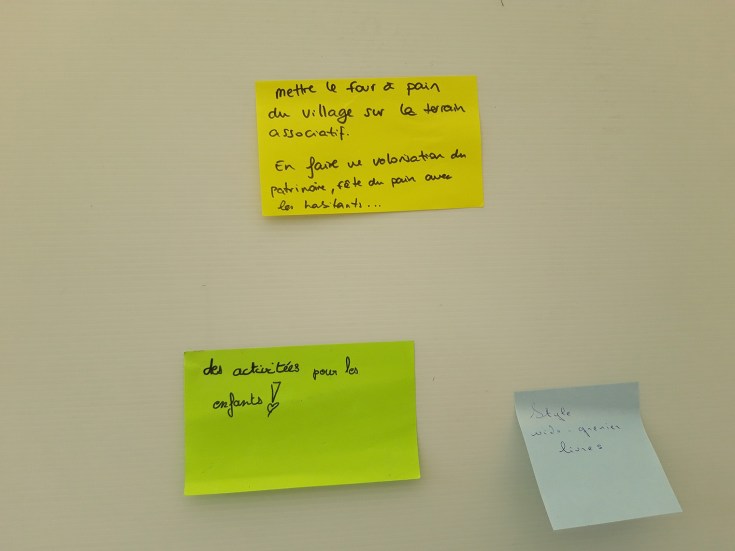 mettre le four à pain
du village sur le terrain
associatif.
En faire une valorisation du
patrimoire, fête du pain avec
les habitants...
des activitées pour les
enfants!
Style
vide-grenier
livres